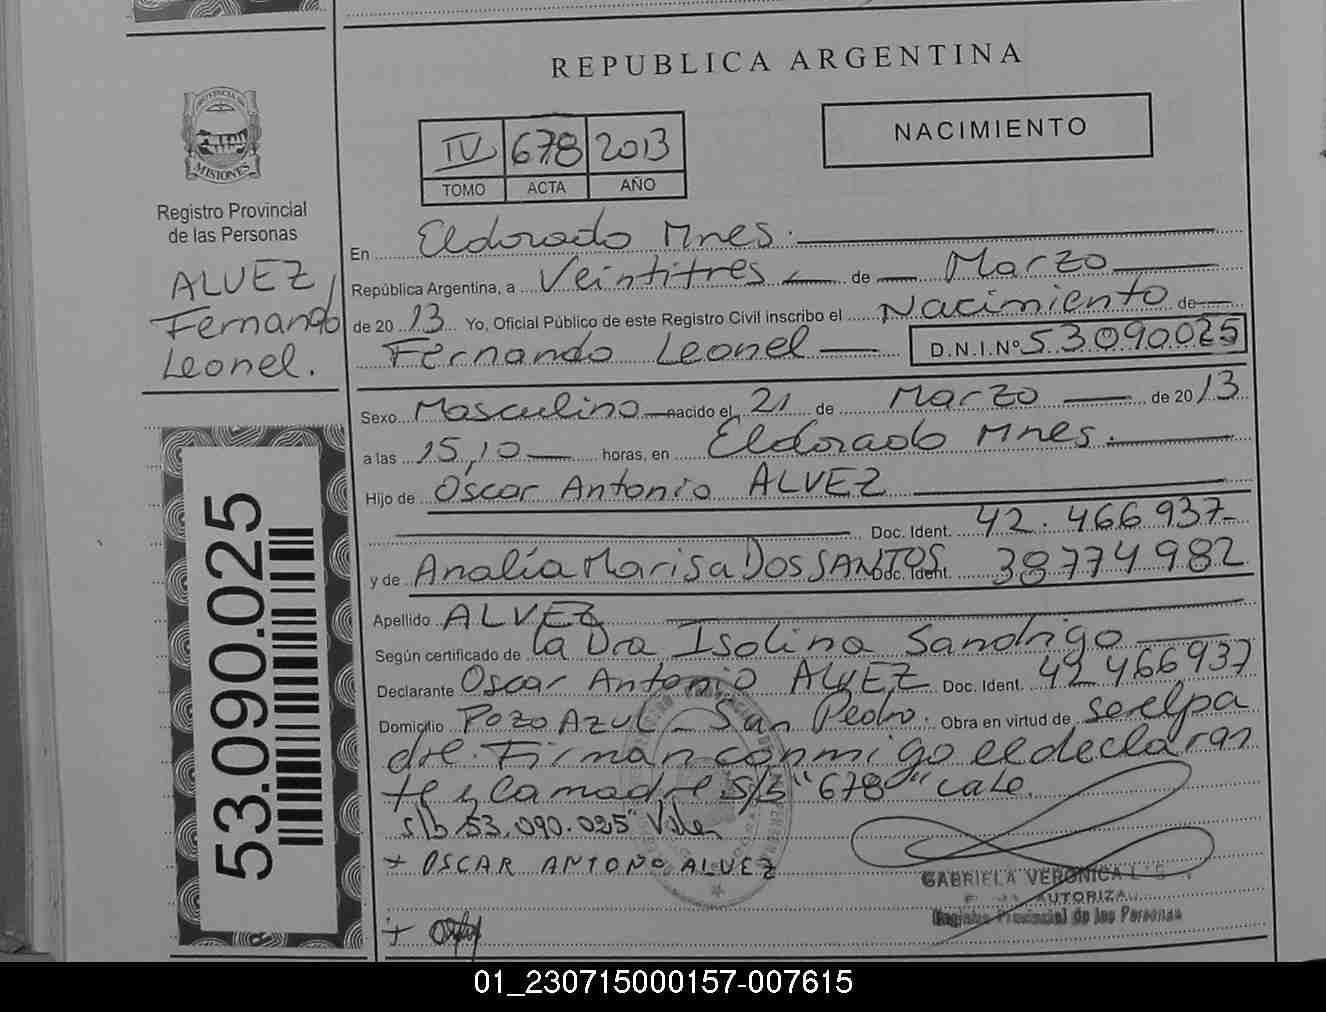 REPUBLICA ARGENTINA
PROVINCIA DE
MISIONES
Registro Provincial
de las Personas
ALVEZ,
Fernando
Leonel.
53.090.025
IV 678 2013
TOMO ACTA AÑO
NACIMIENTO
En Eldorado Mnes.
República Argentina, a Veintitres de Marzo
de 20 13 Yo, Oficial Público de este Registro Civil inscribo el Nacimiento de
Fernando Leonel D.N.I.Nº 53090025
Sexo Masculino nacido el 21 de Marzo de 20 13
a las 15,10 horas, en Eldorado Mnes.
Hijo de Oscar Antonio ALVEZ
Doc. Ident. 42.466937
y de Analía Marisa Dos SANTOS Doc. Ident. 38774982
Apellido ALVEZ
Según certificado de la Dra Isolina Sandrigo
Declarante Oscar Antonio ALVEZ Doc. Ident. 42466937
Domicilio Pozo Azul - San Pedro. Obra en virtud de ser el pa
dre. Firman conmigo el declaran
te y la madre s/b "678" vale.
s/b 53.090.025" Vale
+ OSCAR ANTONO ALVEZ
+
GABRIELA VERONICA
AUTORIZA
Registro Provincial de las Personas
01_230715000157-007615